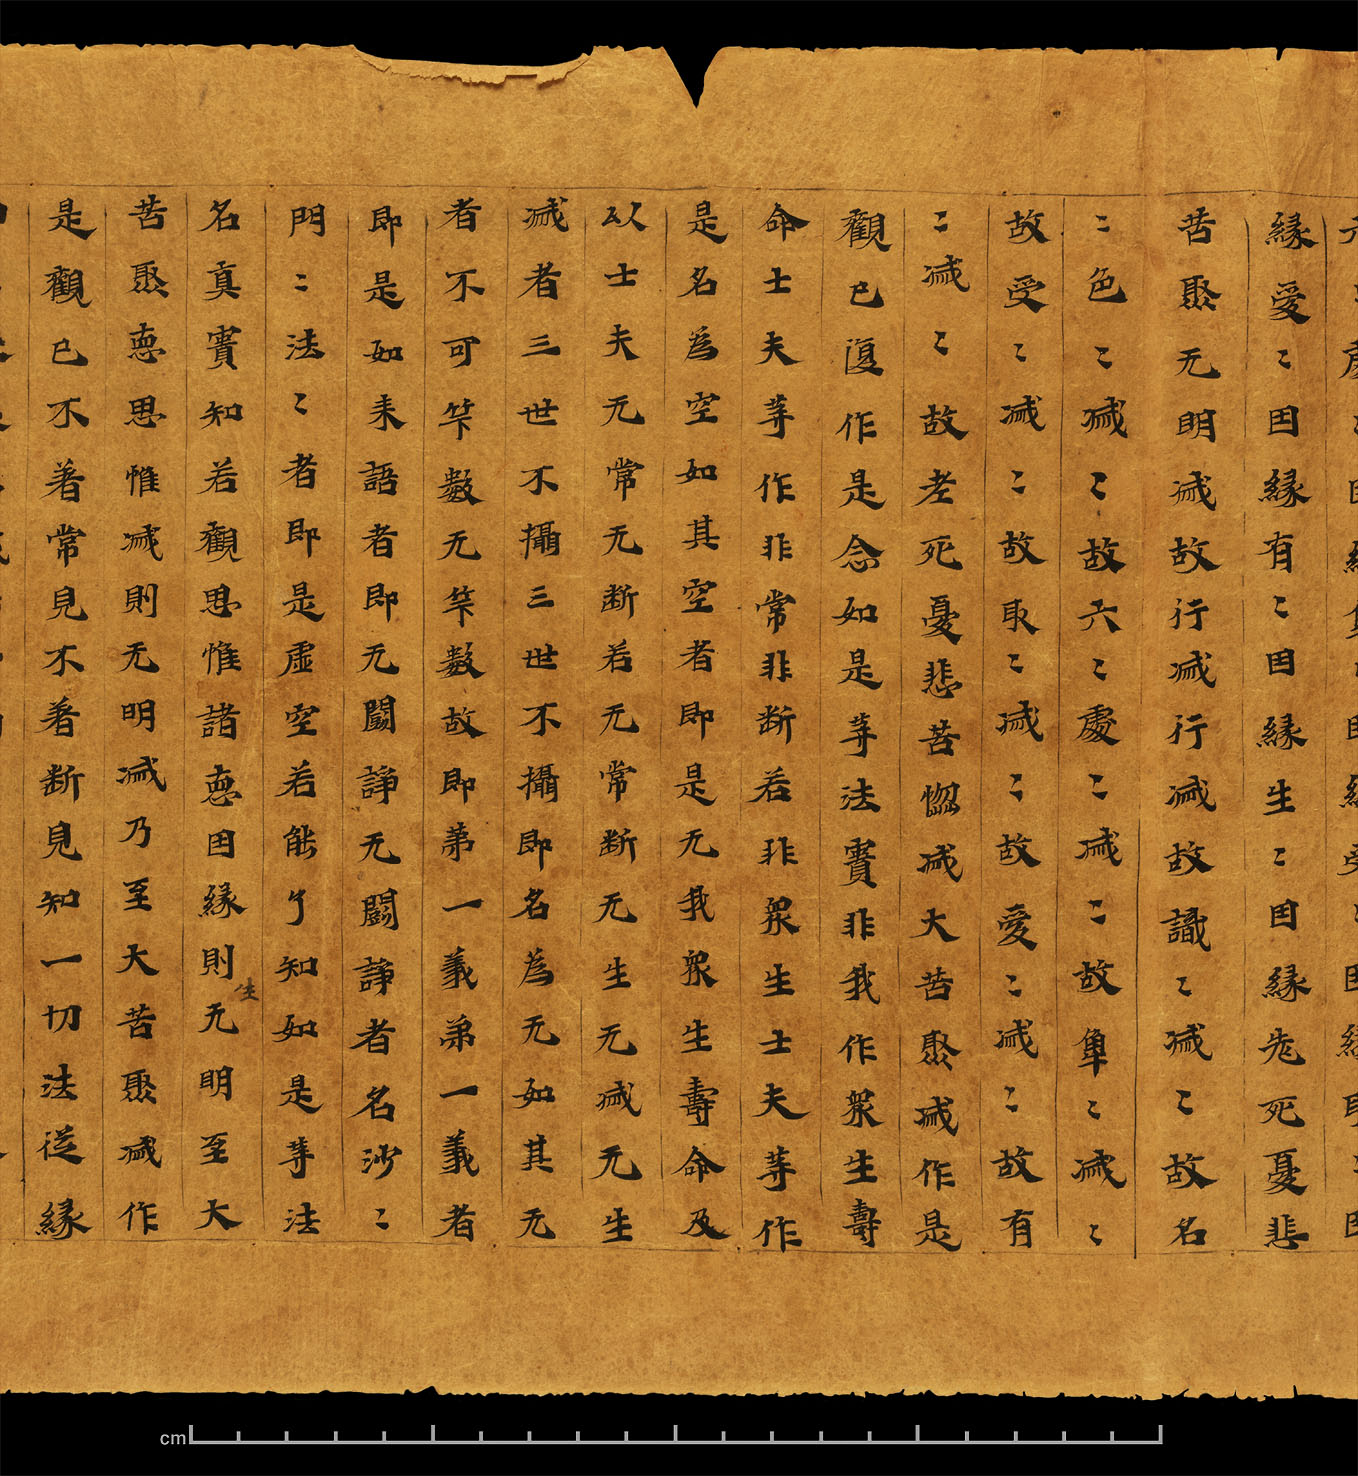 緣愛〻因緣有〻因緣生〻因緣老死憂悲
苦聚无明滅故行滅行滅故識〻滅〻故名
〻色〻滅〻故六〻處〻滅〻故〻滅〻
故受〻滅〻故取〻滅〻故愛〻滅〻故有
〻滅〻故老死憂悲苦惱滅大苦聚滅作是
觀已復作是念如是等法實非我作眾生壽
命士夫等作非常非断若非眾生士夫等作
是名為空如其空者即是无我眾生壽命及
以士夫无常无断若无常断无生无滅无生
滅者三世不攝三世不攝即名為无如其无
者不可筭數无筭數故即第一義第一義者
即是如来語者即无闘諍无闘諍者名沙〻
門〻法〻者即是虛空若能了知如是等法
名真實知若觀思惟諸恵因緣則生无明至大
苦聚恵思惟滅則无明滅乃至大苦聚滅作
是觀已不著常見不著断見知一切法從緣
cm